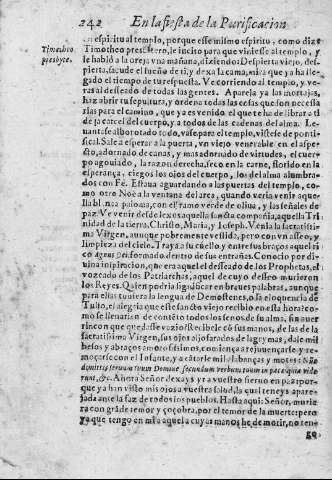 242 En la fiesta de la Purificacion
en espiritu al templo, porque esse mismo espiritu, como dize
Timotheo
presbyte.
Timotheo presbytero, le inci͂o para que viniesse al templo, y
le habló a la oreja vna mañana, diziendo: Despierta viejo, des-
pierta, sacude el sueño de ti, y dexa la cama, mira que ya ha lle-
gado el tiempo de tu respuesta. Ve corriendo al templo, y ve-
ras al desseado de todas las gentes. Apareja ya las mortajas,
haz abrir tu sepultura, y ordena todas las cosas que son necessa
rias para el camino, que ya es venido el que te ha de librar a ti
de la carcel del cuerpo, y a todos de las cadenas del alma. Le
uantase alborotado todo, vase para el templo, vistese de ponti-
fical. Sale a esperar a la puerta, vn viejo venerable en el aspec-
to, adornado de canas, y mas adornado de virtudes, el cuer-
po agouiado, la razon derecha, seco en la carne, florido en la
esperança, ciegos los ojos del cuerpo, los del alma alumbra-
dos con Fé. Estaua aguardando a las puertas del templo, co-
mo otro Noè a la ventana del arca, quando vería venir aque-
lla blanca paloma, con el ramo verde de oliua, y las señales de
paz. Ve venir desde lexos aquella sancta compañia, aquella Tri
nidad de la tierra, Christo, Maria, y Ioseph. Venia la sacratissi-
ma Virgen, aunque pobremente vestida, pero con vn asseo, y
limpieza del cielo. Traya a su cuello, y entre sus braços aquel ri
co Agnus Dei formado dentro de sus entrañas. Conocio por di-
uina inspiracion, que era aquel desseado de los Prophetas, el
vozeado de los Patriarchas, aquel de cuyo desseo murieron
los Reyes. Quien podria significar en breues palabras, aunque
para ellas tuuiera la lengua de Demostenes, o la eloquencia de
Tulio, el alegria que este sancto viejo recibio en esta hora: co-
mo se llenarian de contēto todos los senos de su alma, sin auer
rincon que quedasse vazio! Recibele cō sus manos, de las de la
sacratissima Virgen, sus ojos aljofarados de lagrymas, dale mil
besos y abraços amorosissimos, comiença a rejuuenecerse, y re-
moçarse con el Infante, y a cātarle mil alabanças y motes: Nūc
dimittis seruum tuum Domine, secundum verbum tuum in pace: quia vide
runt, &c. Ahora Señor dexays yr a vuestro sieruo en paz: por-
que ya han visto mis ojos a vuestra salud, la qual teneys apare-
jada ante la faz de todos los pueblos. Hasta aqui: Señor, murie
ra con grāde temor y çoçobra, por el temor de la muerte: pero
ya que tengo en mi a aquel a cuyas manos he de morir, no ten-
go